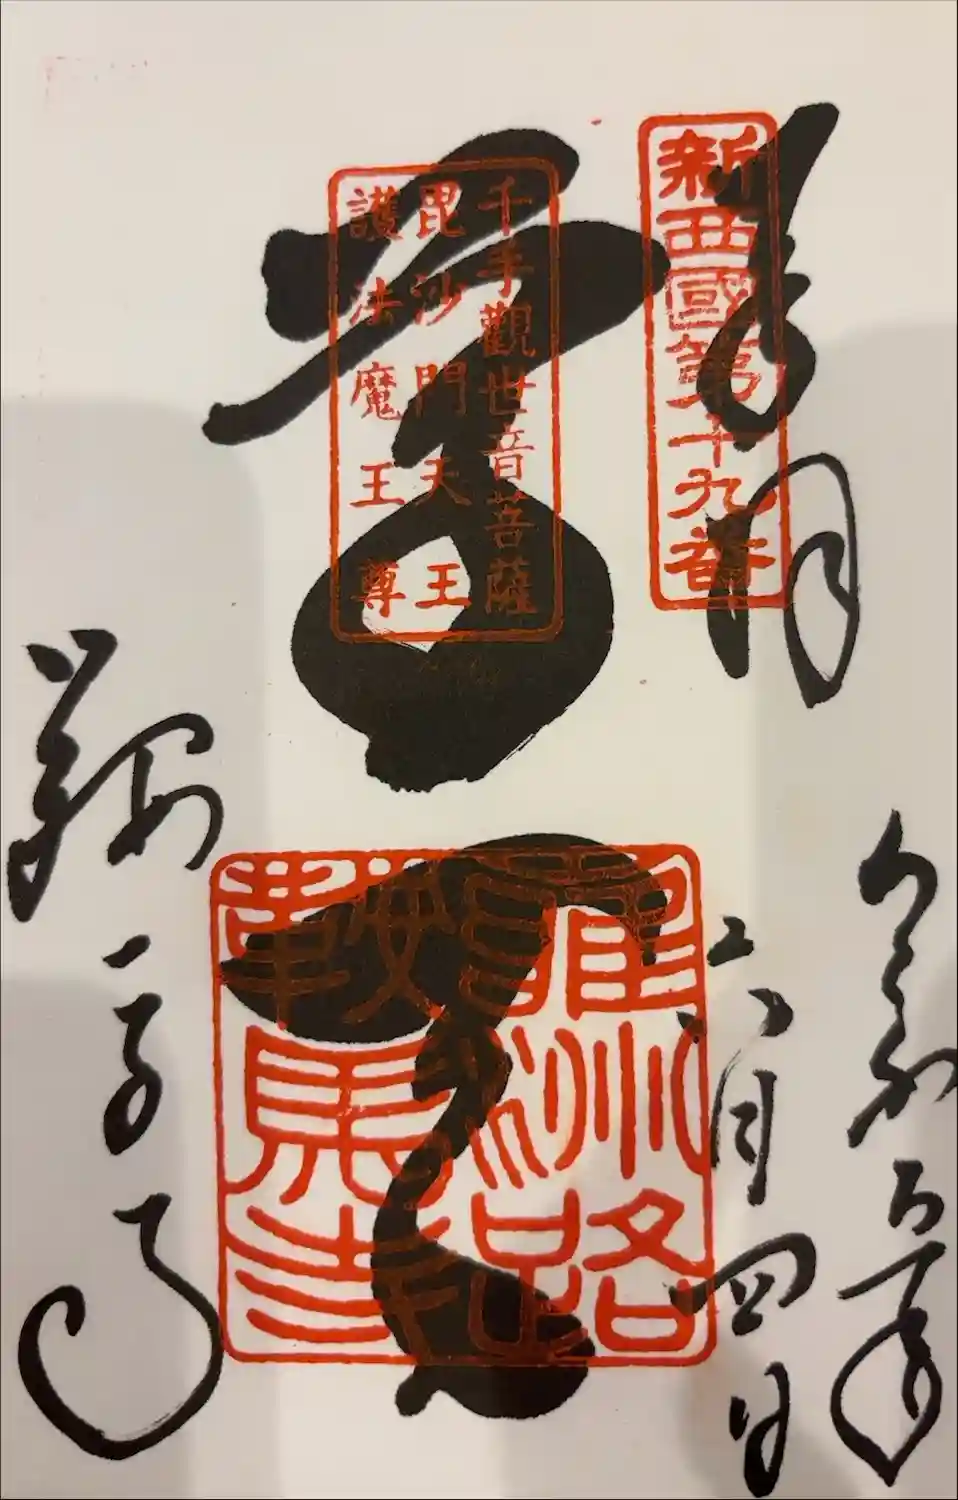 新西國第十九番
千手觀世音菩薩
毘沙門天王
護法魔王尊
尊天
六月四日
鞍馬寺
鞍馬寺